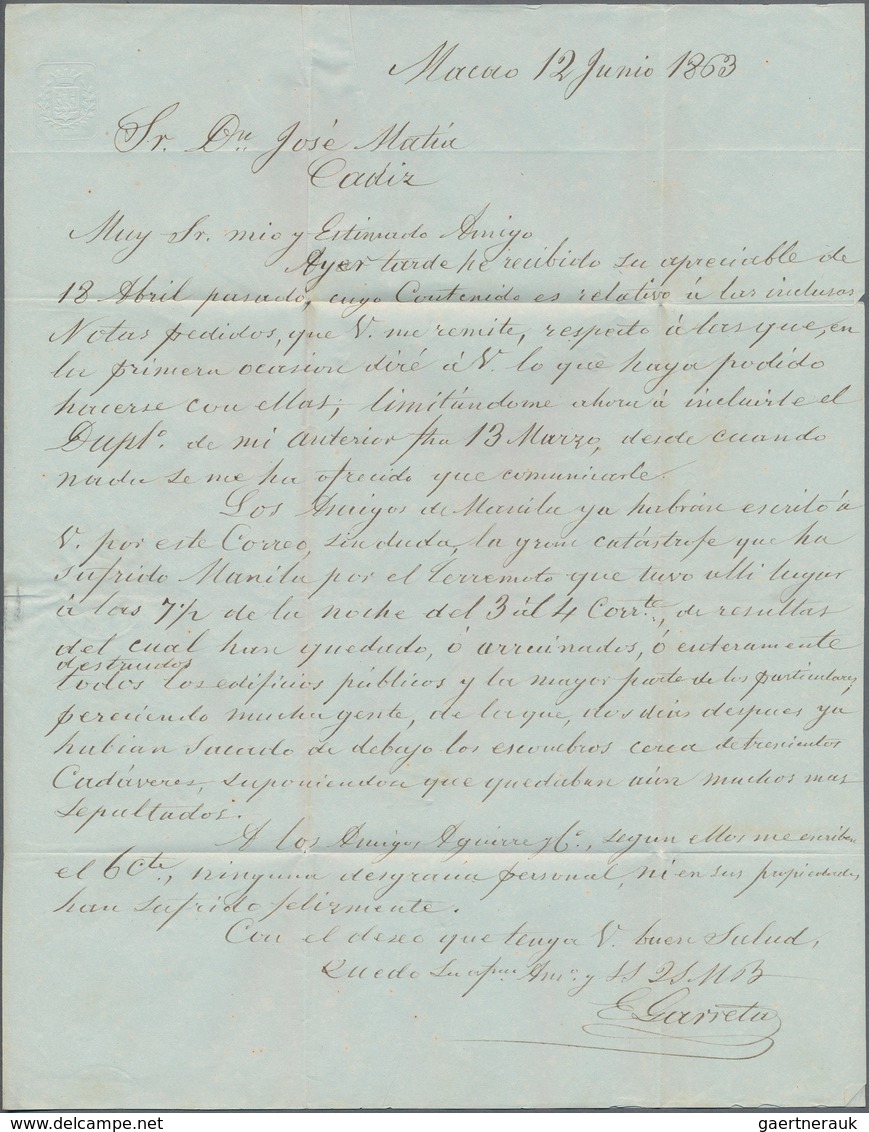 Macao 12 Junio 1863
Sr. Dn. José Matia
Cadiz
Muy Sr. mio y Estimado Amigo
Ayer tarde he recibido su apreciable de
18 Abril pasado, cuyo Contenido es relativo á las inclusas
Notas pedidos, que V. me remite, respecto á las que, en
la primera ocasion diré á V. lo que haya podido
hacerse con ellas; limitándome ahora á incluirle el
Duplo. de mi anterior fha 13 Marzo, desde cuando
nada se me ha ofrecido que comunicarle.
Los Amigos de Manila ya habrán escrito á
V. por este Correo, sin duda, la gran catástrofe que ha
sufrido Manila por el terremoto que tuvo alli lugar
á las 7½ de la noche del 3 al 4 Corrte., de resultas
del cual han quedado, ó arruinados, ó enteramente
destruidos
todos los edificios públicos y la mayor parte de los particulares,
pereciendo mucha gente, de la que, dos dias despues ya
habian sacado de debajo los escombros cerca de trescientos
Cadáveres, suponiendose que quedaban aún muchos mas
sepultados.
A los Amigos Aguirre y Ca., segun ellos me escriben
el 6 Cte., ninguna desgracia personal, ni en sus propiedades
han sufrido felizmente.
Con el deseo que tenga V. buen Salud,
Quedo Su Amo. y SS QSMB
E Garreta
gaertnerauk